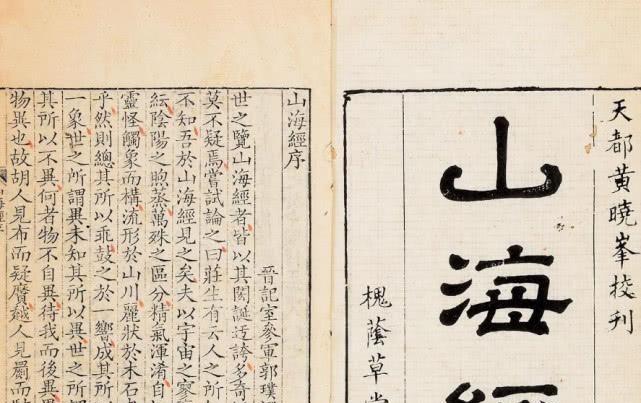 天都黃曉峯挍刊
山海經
槐蔭草堂
山海經序
晉記室參軍郭璞
世之覽山海經者皆以其閎誕迂誇多奇
莫不疑焉嘗試論之曰莊生有云人之所
不知吾於山海經見之矣夫以宇宙之寥
紜陰陽之煦蒸萬殊之區分精氣渾淆自
靈怪觸象而構流形於山川麗狀於木石
乎然則總其所以乖鼓之於一響成其所
一象世之所謂異未知其所以異世之所
其所以不異何者物不自異待我而後異
物異也故胡人見布而疑黂越人見罽而